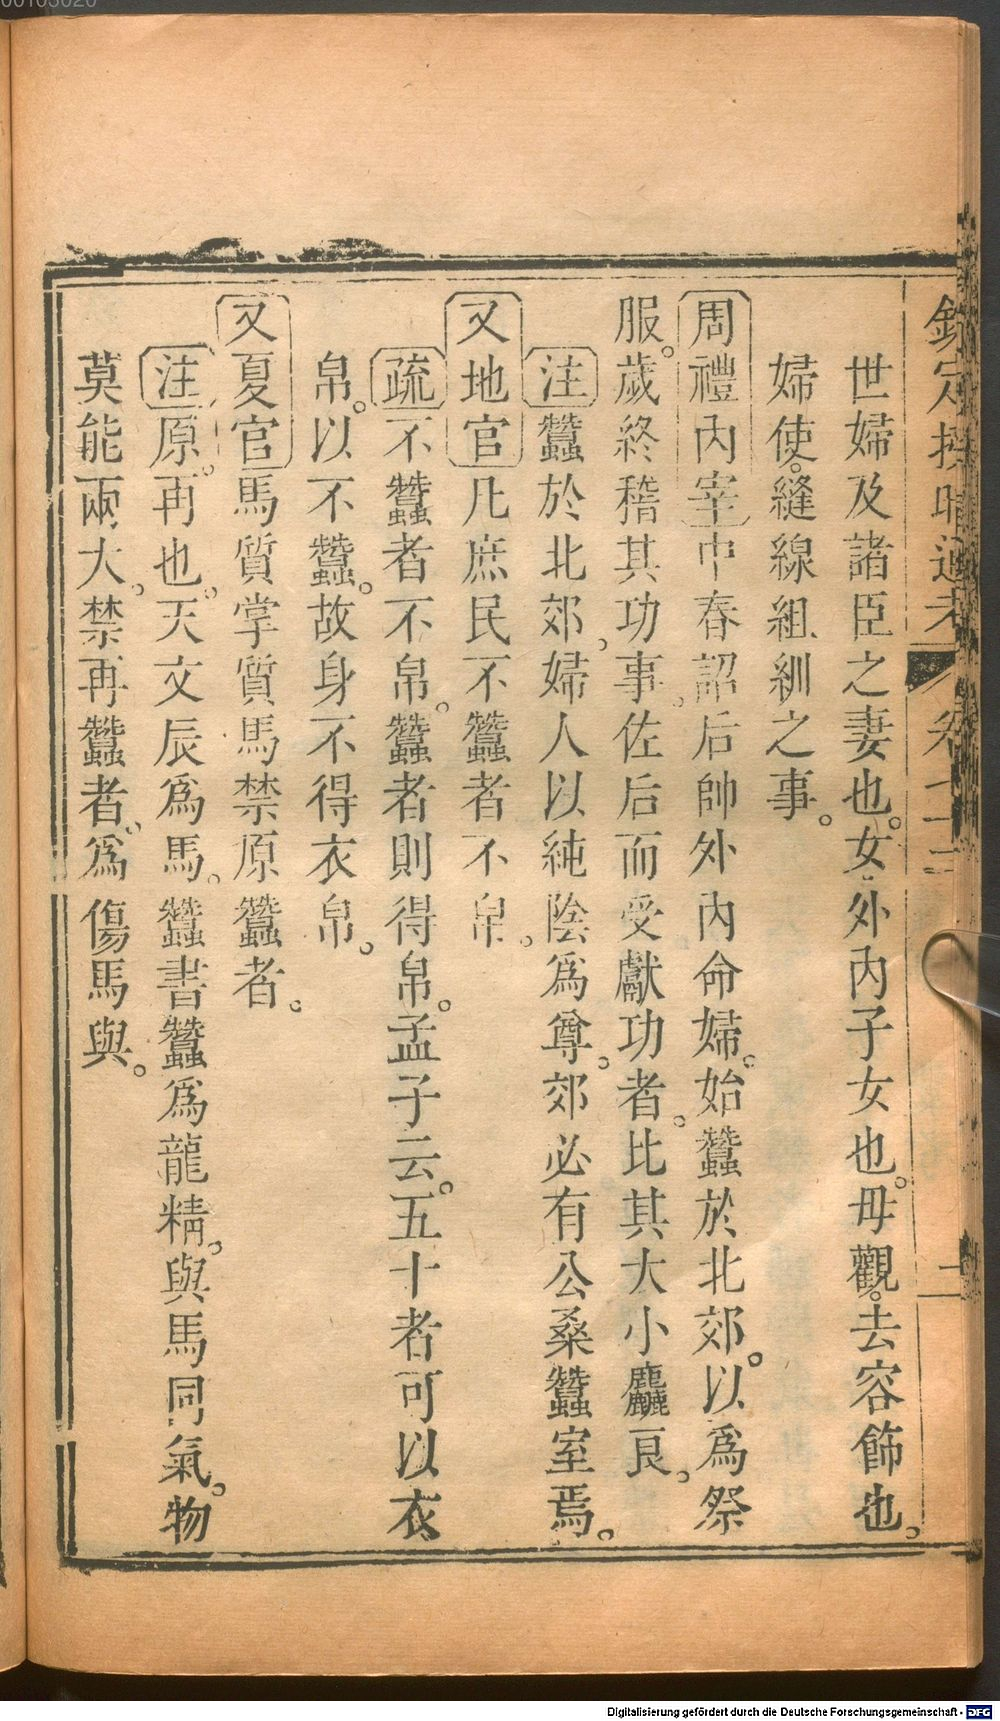 欽定授時通考 卷七十二 二
世婦及諸臣之妻也。女外內子女也。毋觀。去容飾也。
婦使。縫線組紃之事。
周禮內宰中春詔后帥外內命婦。始蠶於北郊。以為祭
服。歲終稽其功事。佐后而受獻功者。比其大小麤良。
注蠶於北郊。婦人以純陰爲尊。郊必有公桑蠶室焉。
又地官凡庶民不蠶者不帛。
疏不蠶者不帛。蠶者則得帛。孟子云。五十者可以衣
帛。以不蠶。故身不得衣帛。
又夏官馬質掌質馬禁原蠶者。
注原。再也。天文辰爲馬。蠶書蠶爲龍精。與馬同氣。物
莫能兩大。禁再蠶者。爲傷馬與。
00103020
Digitalisierung gefördert durch die Deutsche Forschungsgemeinschaft - DFG